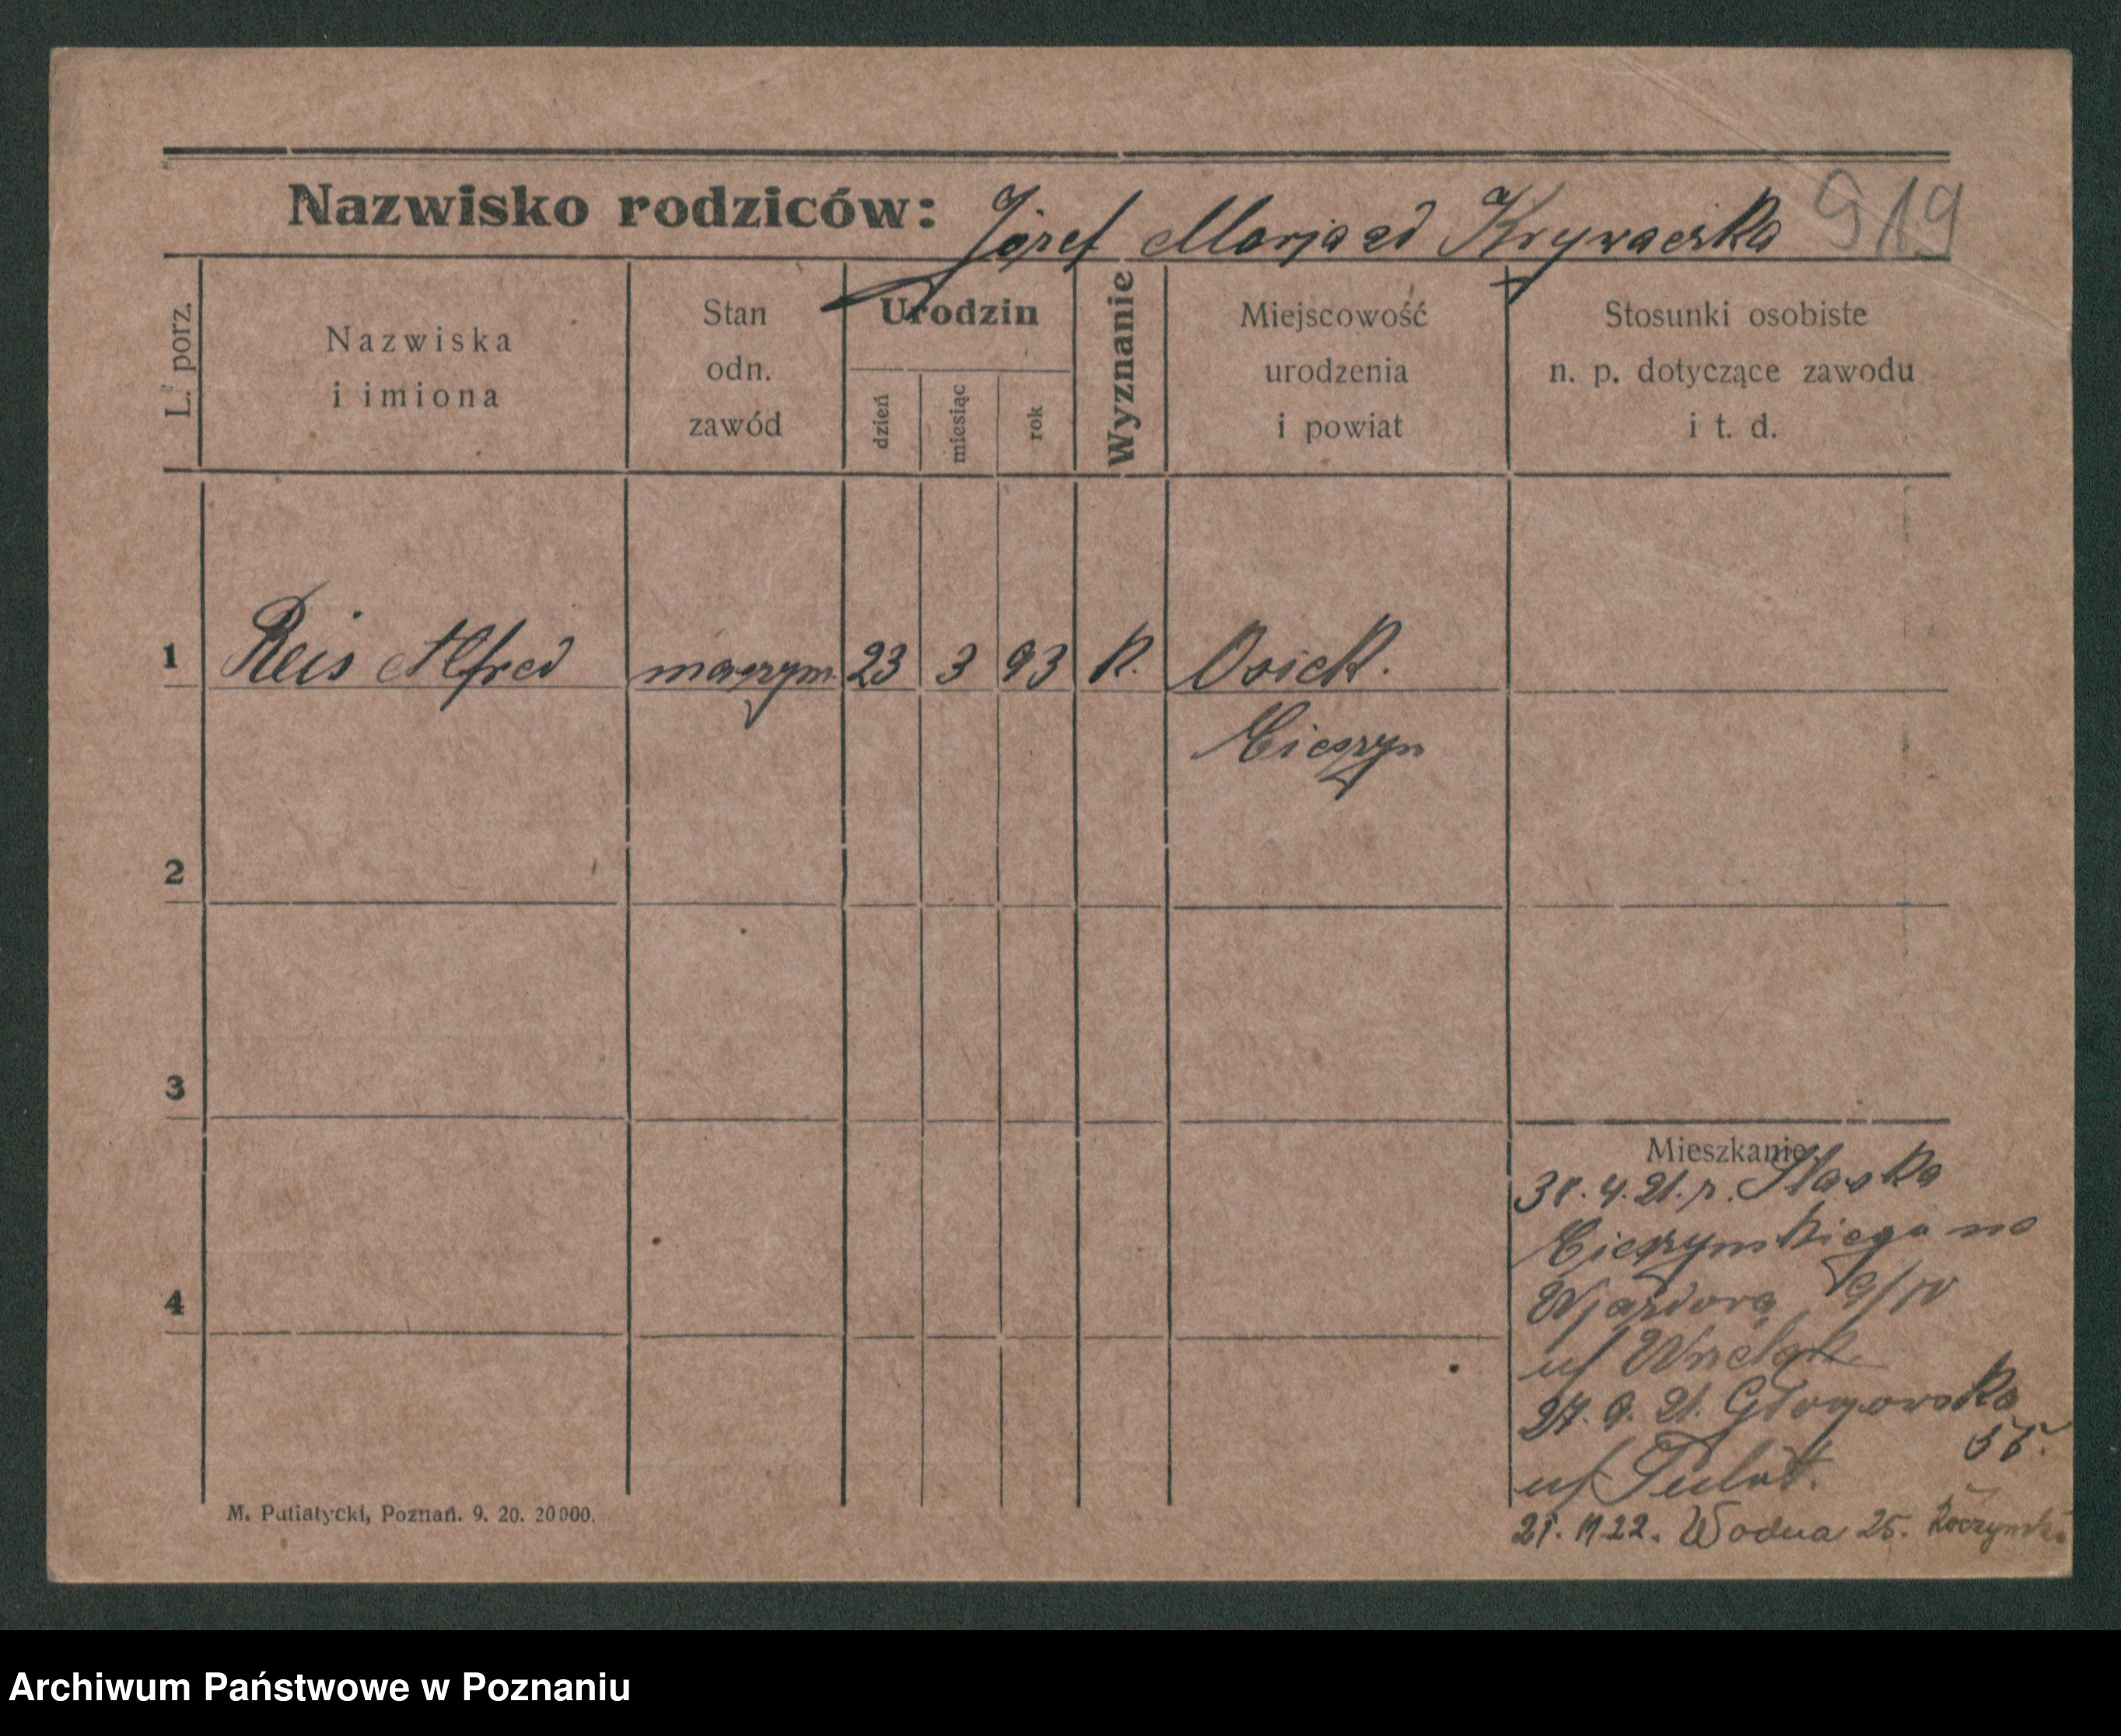 Nazwisko rodziców: Józef Marja zd Krywaczka 919
L. porz.
Nazwiska
i imiona
Stan
odn.
zawód
Urodzin
dzień
miesiąc
rok
Wyznanie
Miejscowość
urodzenia
i powiat
Stosunki osobiste
n. p. dotyczące zawodu
i t. d.
1 Reis Alfred maszyn. 23 3 93 k. Osiek.
Cieszyn
2
3
4
Mieszkanie
4. 21. r. Slaska
Cieszynskiego na
Wjazdową 9/IV
u/
27. 9. 21. Głogowska
u/
22. Wodna 25.
M. Putiatycki, Poznań. 9. 20. 20000.
Archiwum Państwowe w Poznaniu